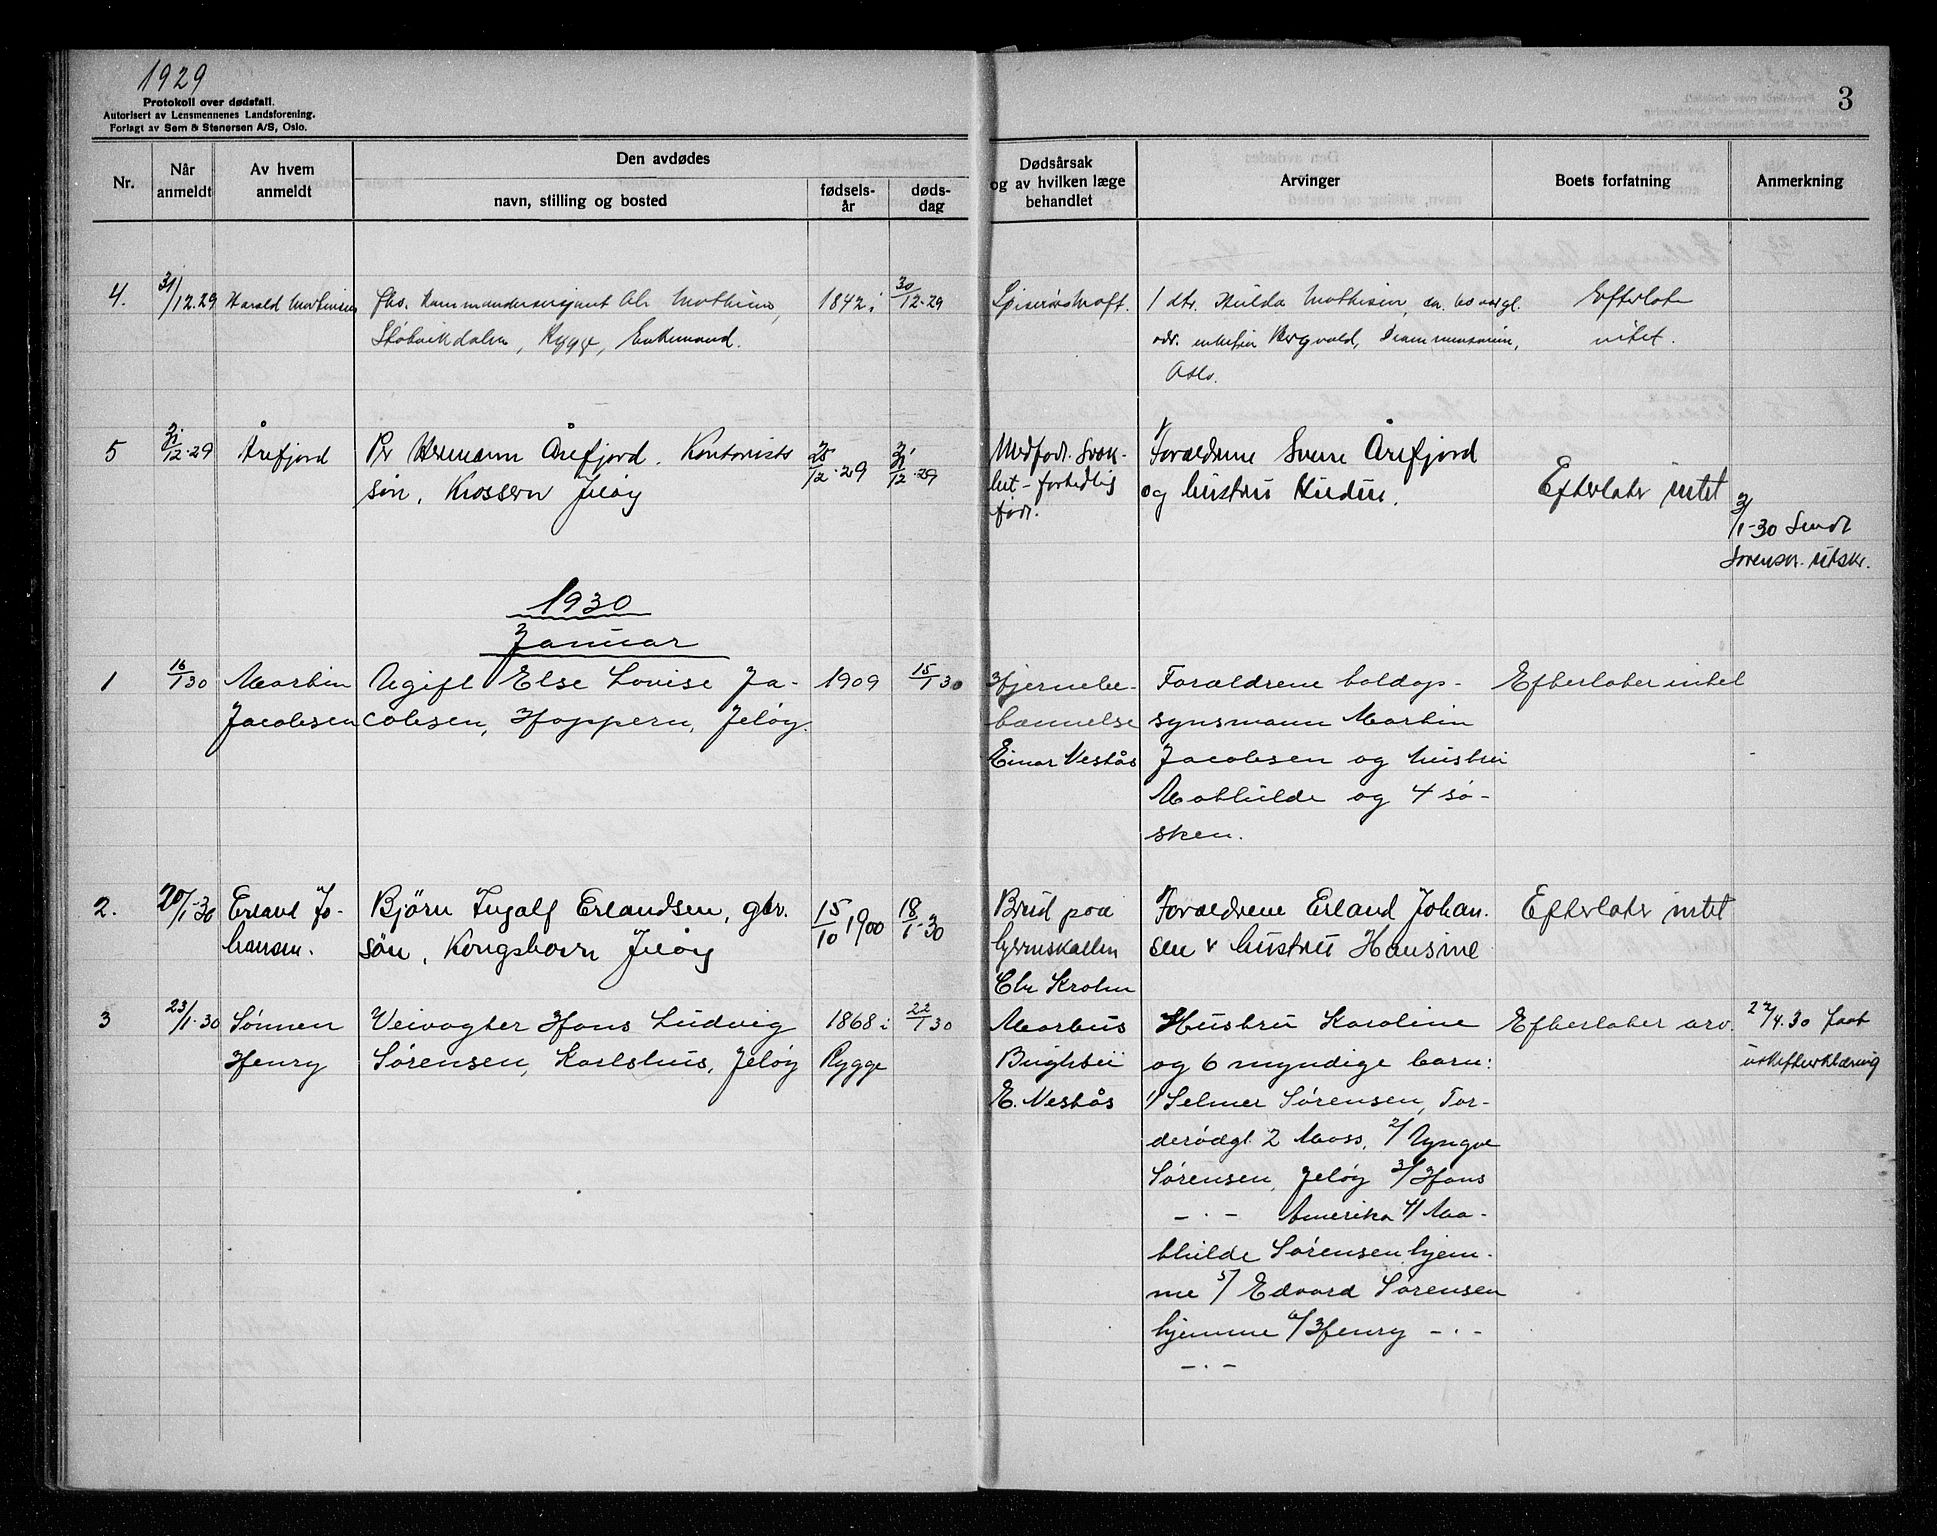 1929
Protokoll over dødsfall.
Autorisert av Lensmennenes Landsforening.
Forlagt av Sem & Stenersen A/S, Oslo.
3
Nr.
Når anmeldt
Av hvem anmeldt
Den avdødes
navn, stilling og bosted
fødsels-år
døds-dag
Dødsårsak og av hvilken læge behandlet
Arvinger
Boets forfatning
Anmerkning
4. 31/12.29 Harald
Rygge, Enkemand.
1842 i 30/12-29
1 dtr. Hulda Mathisen, ca. 60 aar gl.
adr. Bergvold,
Oslo.
Efterlater
intet.
5 31/12-29 Årefjord
Hermann Årefjord. Kontorists
søn, Krossern Jeløy
28/12-29 31/12-29
Medfødt svak-
het - fortidlig
født.
Forældrene Årefjord
og hustru
Efterlater intet
3/1-30 Sendt
Sorenskr. utskr.
1930
Januar
1 16/1 30 Martin
Jacobsen
Ugift Else Lovise Ja-
cobsen, Hoppern, Jeløy.
1909 15/1 30
Hjernebe-
tennelse
Einar Nestås
Forældrene boldop-
synsmann Martin
Jacobsen og hustru
Mathilde og 4 sø-
sken.
Efterlater intet
2. 20/1-30 Erland Jo-
hansen.
Bjørn Ingolf Erlandsen, gbr.
søn, Kongshavn Jeløy
15/10 1900 18/1-30
Brud paa
hjerneskallen
Chr Krohn
Forældrene Erland Johan-
sen & hustru Hansine
Efterlater intet
3 23/1-30 Sønnen
Henry
Veivogter Hans Ludvig
Sørensen, Karlshus, Jeløy
1868 i
Rygge
22/1 30
Morbus
Brightii
E. Nestås
Hustru Karoline
og 6 myndige barn:
1/ Selmer Sørensen, Tor-
derødgt 2 Moss, 2/ Yngve
Sørensen, Jeløy 3/ Hans
- . - Amerika 4/ Ma-
thilde Sørensen hjem-
me 5/ Edvard Sørensen
hjemme 6/ Henry - . -
- . -
Efterlater arv
22/4.30 faat
uskifteerklæring